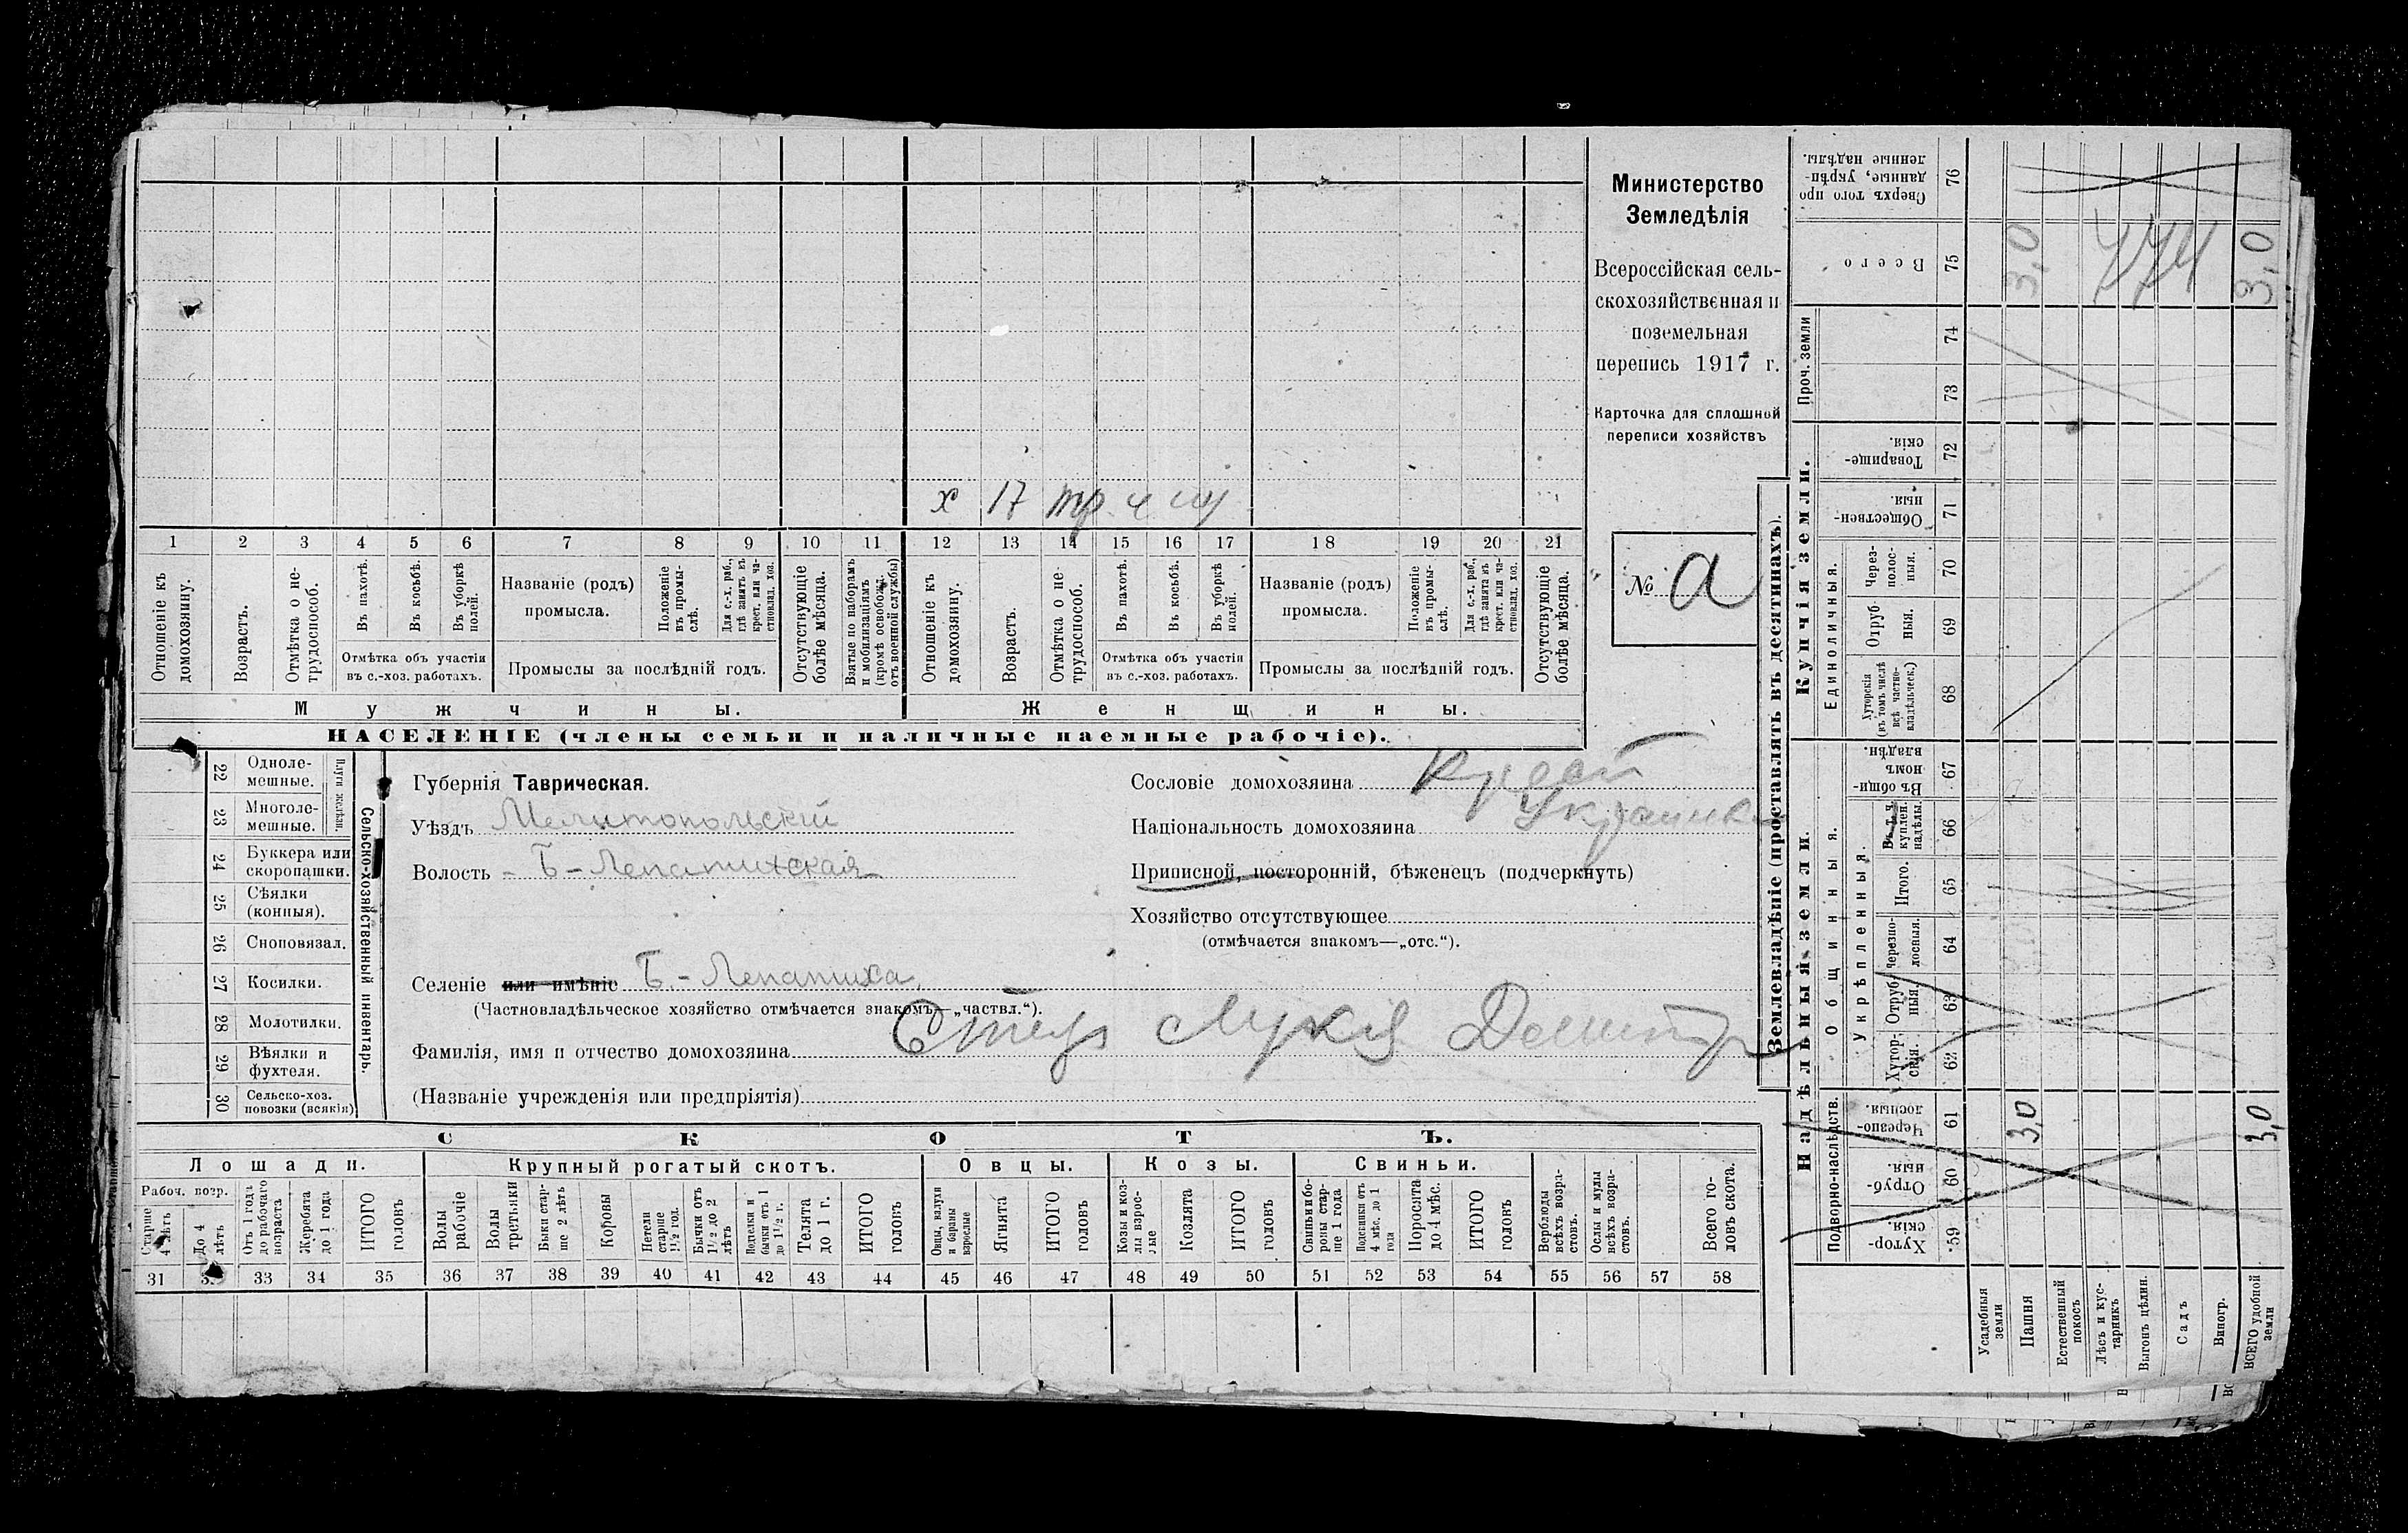 х 17 тр ч
1 2 3 4 5 6 7 8 9 10 11 12 13 14 15 16 17 18 19 20 21
Отношеніе къ домохозяину.
Возрастъ.
Отмѣтка о не-
трудоспособ.
Въ пахотѣ.
Въ косьбѣ.
Въ уборкѣ
полей.
Отмѣтка объ участіи
въ с.-хоз. работахъ.
Названіе (родъ)
промысла.
Положеніе
въ промы-
слѣ.
Для с.-х. раб.,
гдѣ занятъ въ
крест. или ча-
стновлад. хоз.
Промыслы за послѣдній годъ.
Отсутствующіе
болѣе мѣсяца.
Взятые по наборамъ
и мобилизаціямъ
(кромѣ освобожд.
отъ военной службы)
Отношеніе къ
домохозяину.
Возрастъ.
Отмѣтка о не-
трудоспособ.
Въ пахотѣ.
Въ косьбѣ.
Въ уборкѣ
полей.
Отмѣтка объ участіи
въ с.-хоз. работахъ.
Названіе (родъ)
промысла.
Положеніе
въ промы-
слѣ.
Для с.-х. раб.,
гдѣ занята въ
крест. или ча-
стновлад. хоз.
Промыслы за послѣдній годъ.
Отсутствующіе
болѣе мѣсяца.
Мужчины.
Женщины.
НАСЕЛЕНІЕ (члены семьи и наличные наемные рабочіе).
Министерство
Земледѣлія
Всероссійская сель-
скохозяйственная и
поземельная
перепись 1917 г.
Карточка для сплошной
переписи хозяйствъ
№ а
22 Одноле-
мешные.
23 Многоле-
мешные.
Плуги желѣзн.
24 Буккера или
скоропашки.
25 Сѣялки
(конныя).
26 Сноповязал.
27 Косилки.
28 Молотилки.
29 Вѣялки и
фухтеля.
30 Сельско-хоз.
повозки (всякія)
Сельско-хозяйственный инвентарь.
Губернія Таврическая.
Уѣздъ Мелитопольскій
Волость Б-Лепатихская
Селеніе или имѣніе Б-Лепатиха
(Частновладѣльческое хозяйство отмѣчается знакомъ—„частвл.“).
Фамилія, имя и отчество домохозяина Лукія Дмитр
(Названіе учрежденія или предпріятія)
Сословіе домохозяина
Національность домохозяина Украинка
Приписной, посторонній, бѣженецъ (подчеркнуть)
Хозяйство отсутствующее
(отмѣчается знакомъ—„отс.“).
СКОТЪ.
Лошади.
Крупный рогатый скотъ.
Овцы.
Козы.
Свиньи.
Рабоч. возр.
Старше
4 лѣтъ
До 4
лѣтъ
Отъ 1 года
до рабочаго
возраста
Жеребята
до 1 года
ИТОГО
головъ
Волы
рабочіе
Волы
третьяки
Быки стар-
ше 2 лѣтъ
Коровы
Нетели
старше
1½ год.
Бычки отъ
1½ до 2
лѣтъ
Подтелки и
бычки отъ 1
до 1½ г.
Телята
до 1 г.
ИТОГО
головъ
Овцы, валухи
и бараны
взрослые
Ягнята
ИТОГО
головъ
Козы и коз-
лы взрос-
лые
Козлята
ИТОГО
головъ
Свиньи и бо-
ровы стар-
ше 1 года
Подсвинки отъ
4 мѣс. до 1
года
Поросята
до 4 мѣс.
ИТОГО
головъ
Верблюды
всѣхъ возра-
стовъ.
Ослы и мулы
всѣхъ возра-
стовъ.
Всего го-
ловъ скота.
31 33 34 35 36 37 38 39 40 41 42 43 44 45 46 47 48 49 50 51 52 53 54 55 56 57 58
Землевладѣніе (проставлять въ десятинахъ).
Надѣльныя земли.
Купчія земли.
Подворно-наслѣдств.
Общинныя.
Укрѣпленныя.
Единоличныя.
Проч. земли
Хутор-
скія. 59
Отруб-
ныя. 60
Черезпо-
лосныя. 61
Хутор-
скія. 62
Отруб-
ныя. 63
Черезпо-
лосныя. 64
Итого. 65
Въ т. ч.
куплен.
надѣлы. 66
Въ общи-
номъ
владѣн. 67
Хуторскія
(въ томъ числѣ
всѣ частно-
владѣльческ.) 68
Отруб-
ныя. 69
Через-
полос-
ныя. 70
Обществен-
ныя. 71
Товарище-
скія. 72
73
74
Всего 75
Сверхъ того про
данные, укрѣп-
ленные надѣлы. 76
Усадебныя
земли
Пашня 3,0 3,0
Естественный
покосъ
Лѣсъ и кус-
тарникъ
Выгонъ цѣлин.
Садъ
Виногр.
ВСЕГО удобной
земли 3,0 3,0